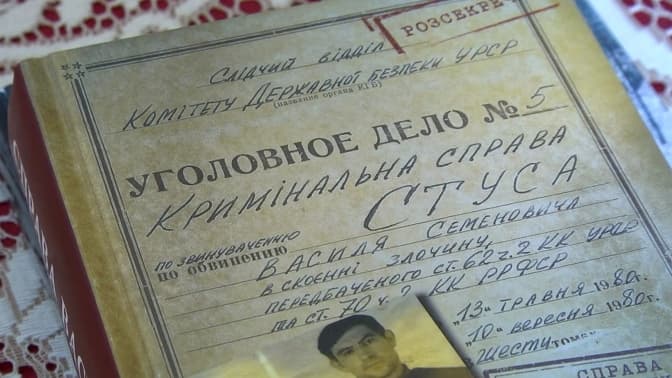 РОЗСЕКРЕ
Слідчий відділ
Комітету Державної Безпеки УРСР
(название органа КГБ)
УГОЛОВНОЕ ДЕЛО № 5
Кримінальна справа
СТУСА
по звинуваченню
по обвинению
Василя Семеновича
в скоєнні злочину,
передбаченого ст. 62 ч. 2 КК УРСР
та ст. 70 ч. 2 КК РРФСР
„13" травня 1980 г.
„10" вересня 1980 г.
в шести томах
СПРАВА
СПРАВА ВАС